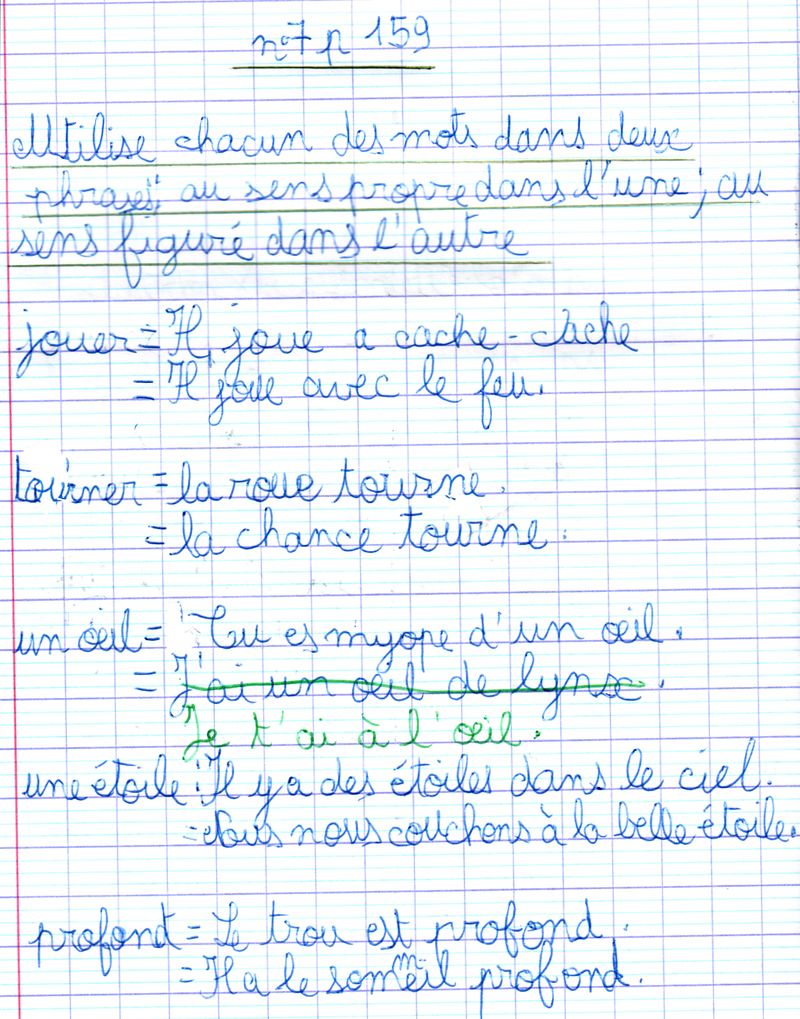 n°7 p 159
Utilise chacun des mots dans deux
phrases; au sens propre dans l'une; au
sens figuré dans l'autre
jouer = Il joue a cache-cache
= Il joue avec le feu.
tourner = la roue tourne.
= la chance tourne.
un œil = Tu es myope d'un œil.
= J'ai un œil de lynx.
Je t'ai à l'œil.
une étoile: Il y a des étoiles dans le ciel.
= Nous nous couchons à la belle étoile.
profond = Le trou est profond.
= Il a le sommeil profond.